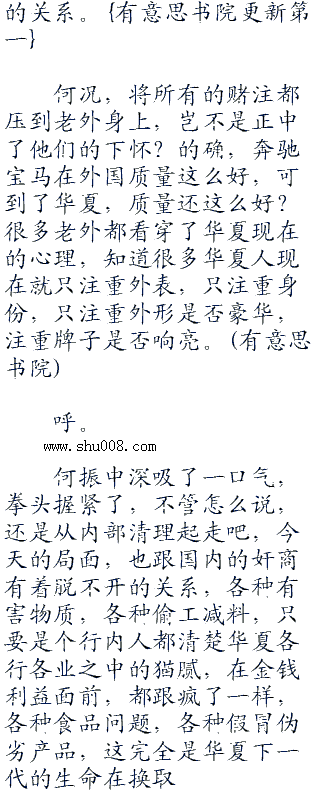 的关系。{有意思书院更新第
一}
何况，将所有的赌注都
压到老外身上，岂不是正中
了他们的下怀？的确，奔驰
宝马在外国质量这么好，可
到了华夏，质量还这么好？
很多老外都看穿了华夏现在
的心理，知道很多华夏人现
在就只注重外表，只注重身
份，只注重外形是否豪华，
注重牌子是否响亮。(有意思
书院)
呼。
www.shu008.com
何振中深吸了一口气，
拳头握紧了，不管怎么说，
还是从内部清理起走吧，今
天的局面，也跟国内的奸商
有着脱不开的关系，各种有
害物质，各种偷工减料，只
要是个行内人都清楚华夏各
行各业之中的猫腻，在金钱
利益面前，都跟疯了一样，
各种食品问题，各种假冒伪
劣产品，这完全是华夏下一
代的生命在换取